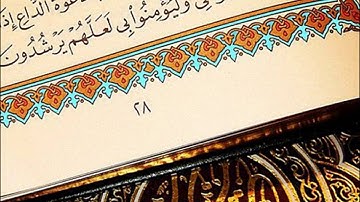 دَعْوَةَ ٱلدَّاعِ
وَلْيُؤْمِنُوا۟ بِى لَعَلَّهُمْ يَرْشُدُونَ
٢٨